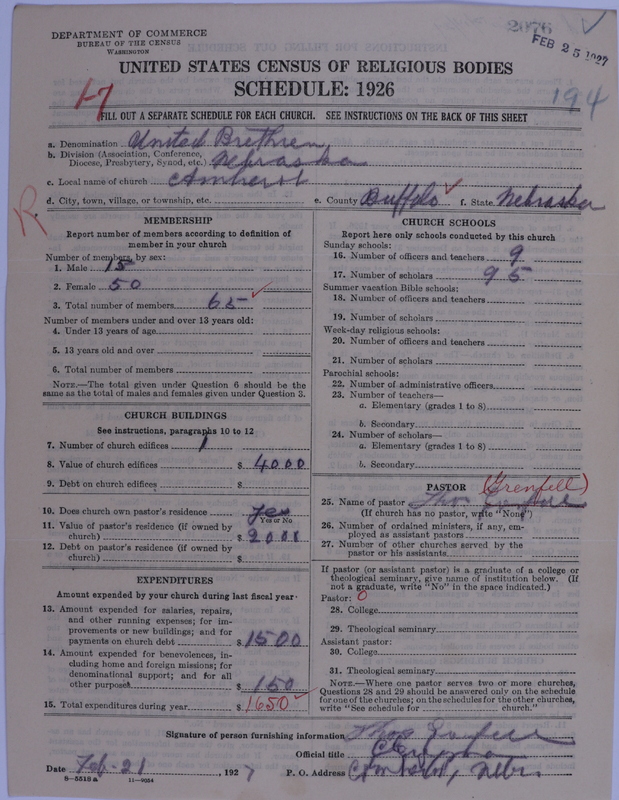 DEPARTMENT OF COMMERCE
BUREAU OF THE CENSUS
WASHINGTON
2076
FEB 25 1927
UNITED STATES CENSUS OF RELIGIOUS BODIES
SCHEDULE: 1926
17
194
FILL OUT A SEPARATE SCHEDULE FOR EACH CHURCH. SEE INSTRUCTIONS ON THE BACK OF THIS SHEET
a. Denomination United Brethren
b. Division (Association, Conference, Diocese, Presbytery, Synod, etc.) Nebraska
c. Local name of church Amherst
d. City, town, village, or township, etc. e. County Buffalo f. State Nebraska
R
MEMBERSHIP
Report number of members according to definition of
member in your church
Number of members by sex:
1. Male 15
2. Female 50
3. Total number of members 65
Number of members under and over 13 years old:
4. Under 13 years of age
5. 13 years old and over
6. Total number of members
NOTE.—The total given under Question 6 should be the
same as the total of males and females given under Question 3.
CHURCH BUILDINGS
See instructions, paragraphs 10 to 12
7. Number of church edifices 1
8. Value of church edifices $ 4000
9. Debt on church edifices $
10. Does church own pastor's residence yes
Yes or No
11. Value of pastor's residence (if owned by
church) $ 2000
12. Debt on pastor's residence (if owned by
church) $
EXPENDITURES
Amount expended by your church during last fiscal year
13. Amount expended for salaries, repairs,
and other running expense; for im-
provements or new buildings; and for
payments on church debt $ 1500
14. Amount expended for benevolences, in-
cluding home and foreign missions; for
denominational support; and for all
other purposes $ 150
15. Total expenditures during year $ 1650
CHURCH SCHOOLS
Report here only schools conducted by this church
Sunday schools:
16. Number of officers and teachers 9
17. Number of scholars 95
Summer vacation Bible schools:
18. Number of officers and teachers
19. Number of scholars
Week-day religious schools:
20. Number of officers and teachers
21. Number of scholars
Parochial schools:
22. Number of administrative officers
23. Number of teachers—
a. Elementary (grades 1 to 8)
b. Secondary
24. Number of scholars—
a. Elementary (grades 1 to 8)
b. Secondary
PASTOR (Grenfell)
25. Name of pastor Thos
(If church has no pastor, write "None")
26. Number of ordained ministers, if any, em-
ployed as assistant pastors
27. Number of other churches served by the
pastor or his assistants
If pastor (or assistant pastor) is a graduate of a college or
theological seminary, give name of institution below. (If
not a graduate, write "No" in the space indicated.)
Pastor: 0
28. College
29. Theological seminary
Assistant pastor:
30. College
31. Theological seminary
NOTE.—Where one pastor serves two or more churches,
Questions 28 and 29 should be answered only on the schedule
for one of the churches; on the schedules for the other churches,
write "See schedule for church."
Signature of person furnishing information Thos
Official title
Date Feb-21, 1927 P. O. Address Amherst, Nebr.
8-5518a 11-9054